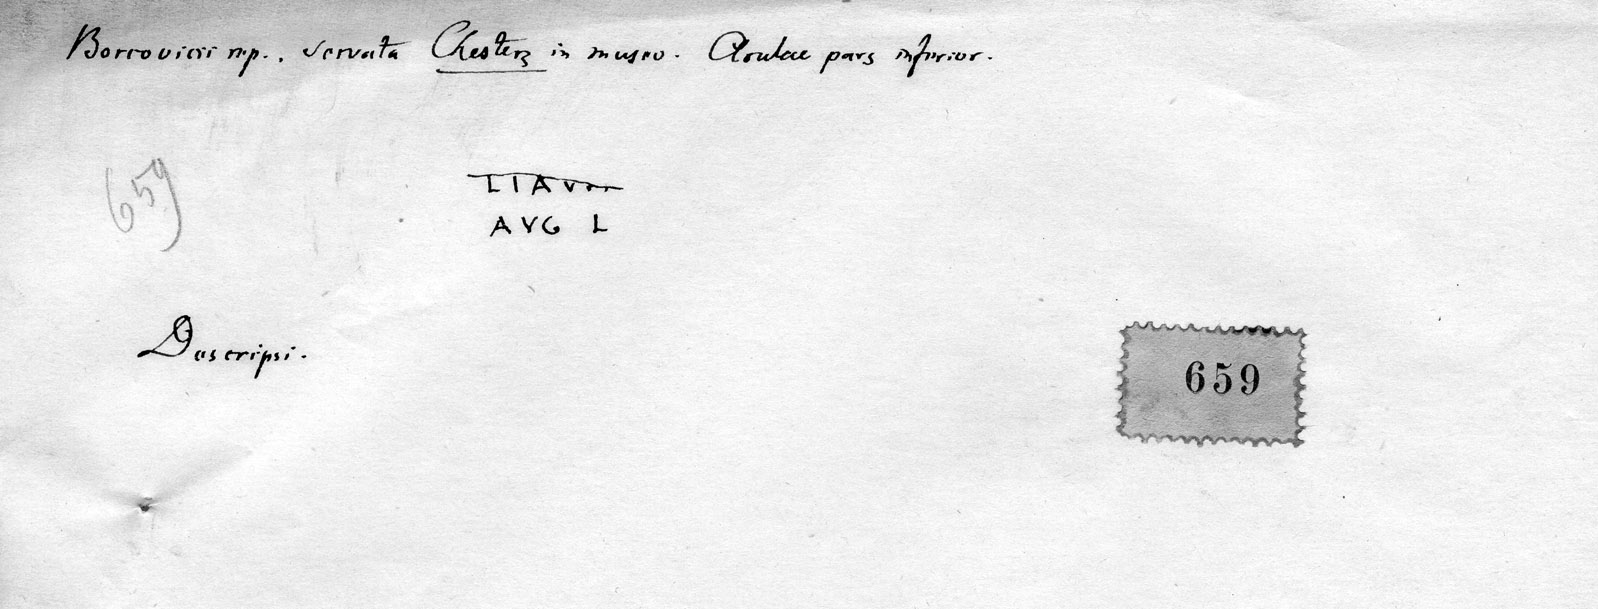 Borcovicii rep., servata Chesters in museo. Arulae pars inferior.
659
LIAV
AVG L
Descripsi.
659